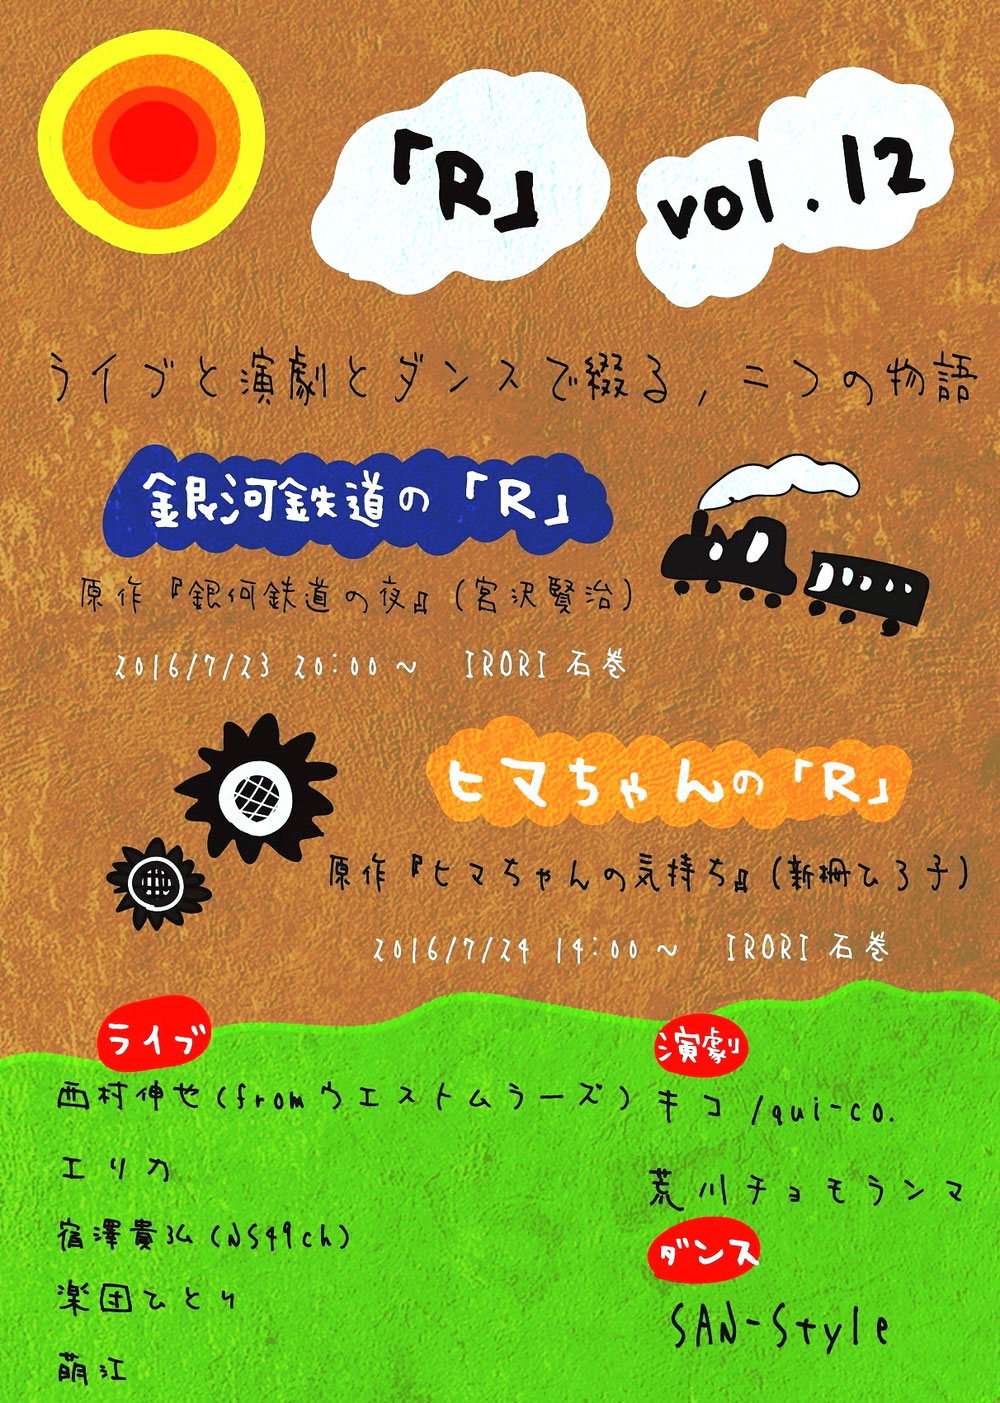 「R」 vol.12
ライブと演劇とダンスで綴る,二つの物語
銀河鉄道の「R」
原作『銀河鉄道の夜』(宮沢賢治)
2016/7/23 20:00～ IRORI 石巻
ヒマちゃんの「R」
原作『ヒマちゃんの気持ち』(新柵ひろ子)
2016/7/24 14:00～ IRORI 石巻
ライブ
西村伸也(fromウエストムラーズ)
エリカ
宿澤貴弘(NS49ch)
楽団ひとり
萠江
演劇
キコ/qui-co.
荒川チョモランマ
ダンス
SAN-Style